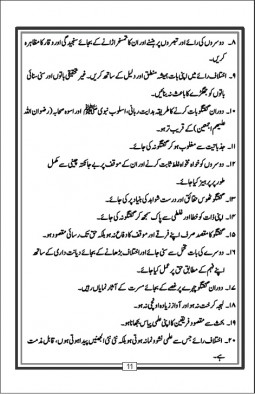 ۸۔ دوسروں کی رائے اور تبصروں پر ہنسنے اور ان کا تمسخر اڑانے کے بجائے سنجیدگی اور وقار کا مظاہرہ
کریں۔
۹۔ اختلاف رائے میں اپنی بات ہمیشہ منطق اور دلیل کے ساتھ کریں۔ غیر تحقیقی باتوں اور سنی سنائی
باتوں کو جھگڑے کا باعث نہ بنائیں۔
۱۰۔ دوران گفتگو بات کرنے کا طریقہ ہدایت ربانی، اسلوب نبوی ﷺ اور اسوہ صحابہ (رضوان اللہ
علیہم اجمعین) کے قریب تر ہو۔
۱۱۔ جذباتیت سے مغلوب ہو کر گفتگو نہ کی جائے۔
۱۲۔ دوسروں کو خواہ مخواہ غلط ثابت کرنے اور ان کے موقف پر بے جا نکتہ چینی سے مکمل
طور پر پرہیز کیا جائے۔
۱۳۔ گفتگو ٹھوس حقائق اور درست شواہد کی بنیاد پر کی جائے۔
۱۴۔ اپنی ذات کو خطا اور غلطی سے پاک سمجھ کر گفتگو نہ کی جائے۔
۱۵۔ گفتگو کا مقصد صرف اپنے فرقے اور موقف کا دفاع نہ ہو بلکہ حق تک رسائی مقصود ہو۔
۱۶۔ دوسرے کی بات تحمل سے سنی جائے اور اختلاف بڑھانے کے بجائے دیانت داری کے ساتھ
اپنے فہم کے مطابق حق پر عمل کیا جائے۔
۱۷۔ دوران گفتگو چہرے پر غصے کے بجائے مسرت کے آثار نمایاں رہیں۔
۱۸۔ لہجہ کرخت نہ ہو اور آواز زیادہ اونچی نہ ہو۔
۱۹۔ بحث سے مقصود فریقین کا اپنی علمی پیاس بجھانا ہو۔
۲۰۔ اختلاف رائے جس سے علمی نشوونما نہ ہوتی ہو بلکہ نئی نئی الجھنیں پیدا ہوتی ہوں، قابل مذمت
ہے۔
11